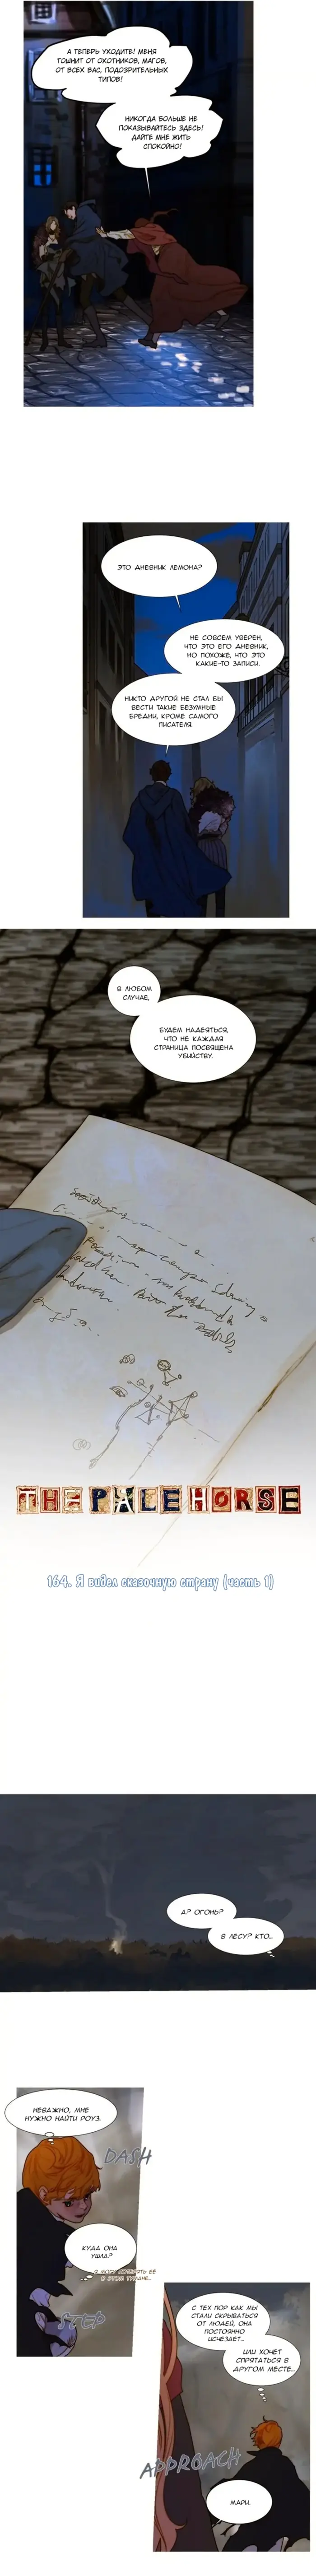 А ТЕПЕРЬ УХОДИТЕ! МЕНЯ
ТОШНИТ ОТ ОХОТНИКОВ, МАГОВ,
ОТ ВСЕХ ВАС, ПОДОЗРИТЕЛЬНЫХ
ТИПОВ!
НИКОГДА БОЛЬШЕ НЕ
ПОКАЗЫВАЙТЕСЬ ЗДЕСЬ!
ДАЙТЕ МНЕ ЖИТЬ
СПОКОЙНО!
ЭТО ДНЕВНИК ЛЕМОНА?
НЕ СОВСЕМ УВЕРЕН,
ЧТО ЭТО ЕГО ДНЕВНИК,
НО ПОХОЖЕ, ЧТО ЭТО
КАКИЕ-ТО ЗАПИСИ.
НИКТО ДРУГОЙ НЕ СТАЛ БЫ
ВЕСТИ ТАКИЕ БЕЗУМНЫЕ
БРЕДНИ, КРОМЕ САМОГО
ПИСАТЕЛЯ.
В ЛЮБОМ
СЛУЧАЕ,
БУДЕМ НАДЕЯТЬСЯ,
ЧТО НЕ КАЖДАЯ
СТРАНИЦА ПОСВЯЩЕНА
УБИЙСТВУ.
THE PALE HORSE
164. Я видел сказочную страну (часть 1)
А? ОГОНЬ?
В ЛЕСУ? КТО...
НЕВАЖНО, МНЕ
НУЖНО НАЙТИ РОУЗ.
DASH
КУДА ОНА
УШЛА?
STEP
С ТЕХ ПОР КАК МЫ
СТАЛИ СКРЫВАТЬСЯ
ОТ ЛЮДЕЙ, ОНА
ПОСТОЯННО
ИСЧЕЗАЕТ...
ИЛИ ХОЧЕТ
СПРЯТАТЬСЯ В
ДРУГОМ МЕСТЕ...
APPROACH
МАРИ.